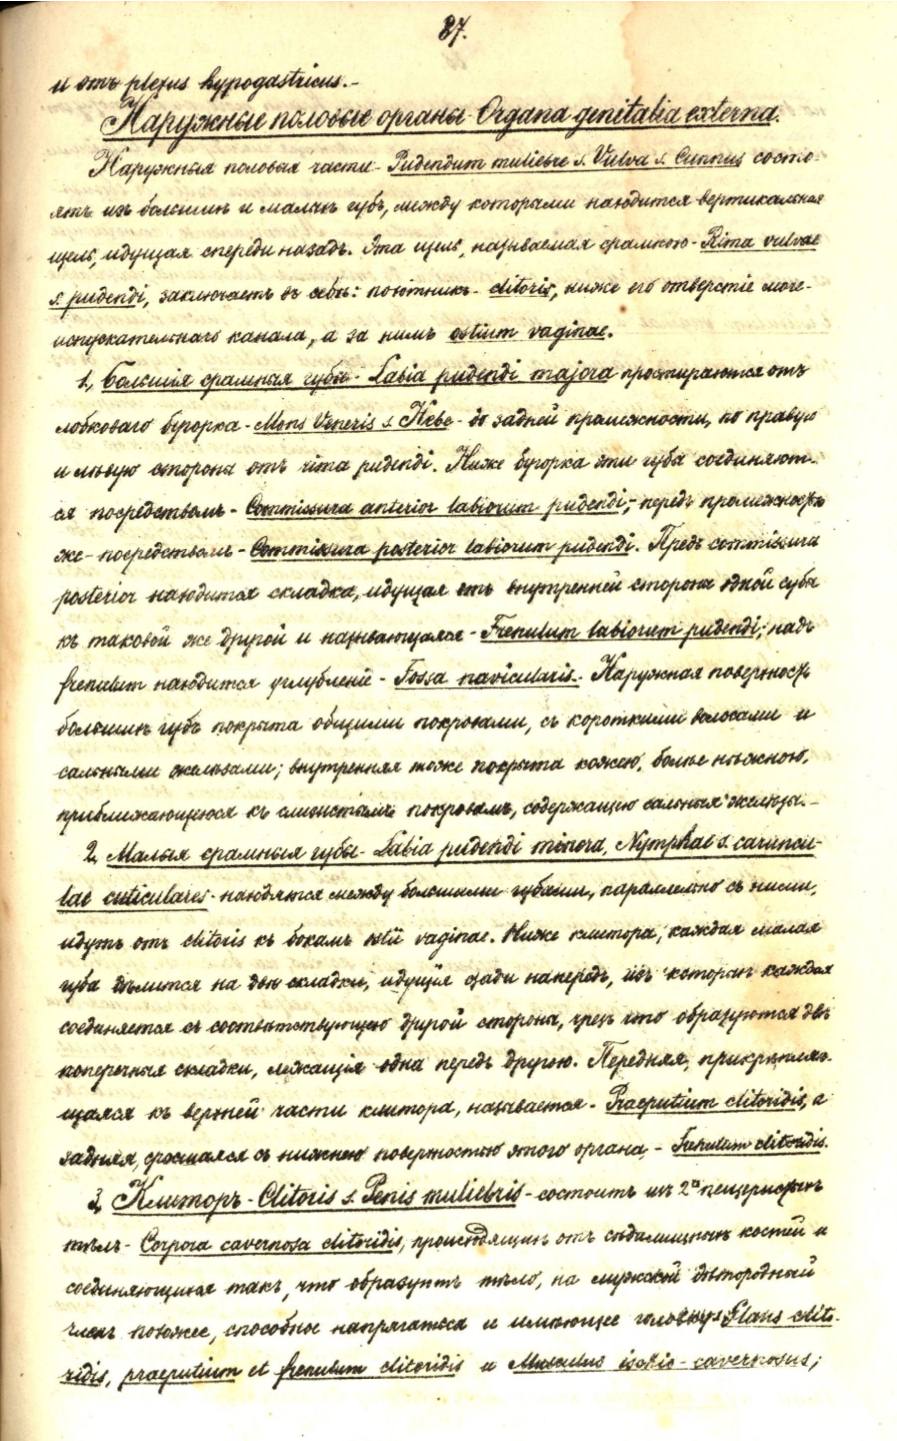 87.
и отъ plexus hypogastricus.-
Наружные половые органы - Organa genitalia externa.
Наружныя половыя части - Pudendum muliebre s. Vulva s. Cunnus состо-
ятъ изъ большихъ и малыхъ губъ, между которыми находится вертикальная
щель, идущая спереди назадъ. Эта щель, называемая срамною - Rima vulvae
s. pudendi, заключаетъ въ себѣ: похотникъ - clitoris, ниже его отверстіе моче-
испускательнаго канала, а за нимъ ostium vaginae.
1, Большія срамныя губы - Labia pudendi majora простираются отъ
лобковаго бугорка - Mons Veneris s. Hebe - до задней промежности, по правую
и лѣвую сторона отъ rima pudendi. Ниже бугорка эти губы соединяют-
ся посредствомъ - Commissura anterior labiorum pudendi; - передъ промежностью
же - посредствомъ - Commissura posterior labiorum pudendi. Предъ commissura
posterior находится складка, идущая отъ внутренней стороны одной губы
къ таковой же другой и называющаяся - Frenulum labiorum pudendi; надъ
frenulum находится углубленіе - Fossa navicularis. - Наружная поверхность
большихъ губъ покрыта общими покровами, съ короткими волосами и
сальными железами; внутренняя тоже покрыта кожею, болѣе нѣжною,
приближающеюся къ слизистымъ покровамъ, содержащею сальныя железы. -
2, Малыя срамныя губы - Labia pudendi minora, Nymphae s. caruncu-
lae cuticulares - находятся между большими губами, параллельно съ ними,
идутъ отъ clitoris къ бокамъ ostii vaginae. Ниже клитора, каждая малая
губа дѣлится на двѣ складки, идущія сзади напередъ, изъ которыхъ каждая
соединяется съ соотвѣтствующею другой стороны, чрезъ что образуются двѣ
поперечныя складки, лежащія одна передъ другою. Передняя, прикрѣпляю-
щаяся къ верхней части клитора, называется - Praeputium clitoridis, а
задняя, сросшаяся съ нижнею поверхностью этого органа, - Frenulum clitoridis.
3, Клиторъ - Clitoris s. Penis muliebris - состоитъ изъ 2ˣ пещеристыхъ
тѣлъ - Corpora cavernosa clitoridis, происходящихъ отъ сѣдалищныхъ костей и
соединяющихся такъ, что образуютъ тѣло, на мужской дѣтородный
членъ похожее, способное напрягаться и имѣющее головку - Glans clito-
ridis, praeputium et frenulum clitoridis и Musculus ischio - cavernosus;